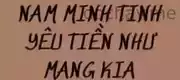 NAM MINH TINH
YÊU TIỀN NHƯ
MẠNG KIA